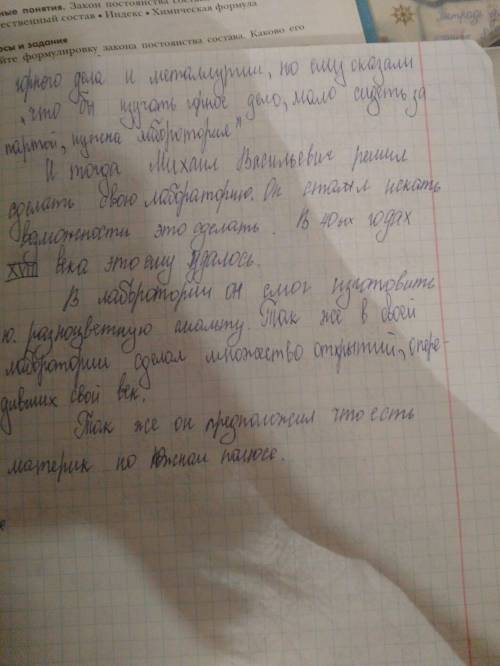 ные понятия. Закон постоянства состава
ественный состав • Индекс • Химическая формула
осы и задание
йте формулировку закона постоянства состава. Каково его
Тетрадь
горного дела и металлургии, но ему сказали
"что бы изучать горное дело, мало сидеть за
партой, нужна лаборотория"
И тогда Михаил Васильевич решил
сделать свою лабораторию. Он стал искать
возможности это сделать. В 40ых годах
XVIII века это ему удалось.
В лаборотории он смог изготовить
ю. разноцветную смальту. Так же в своей
лаборатории сделал множество открытий, опере-
дивших свой век.
Так же он предположил что есть
материк на Южном полюсе.